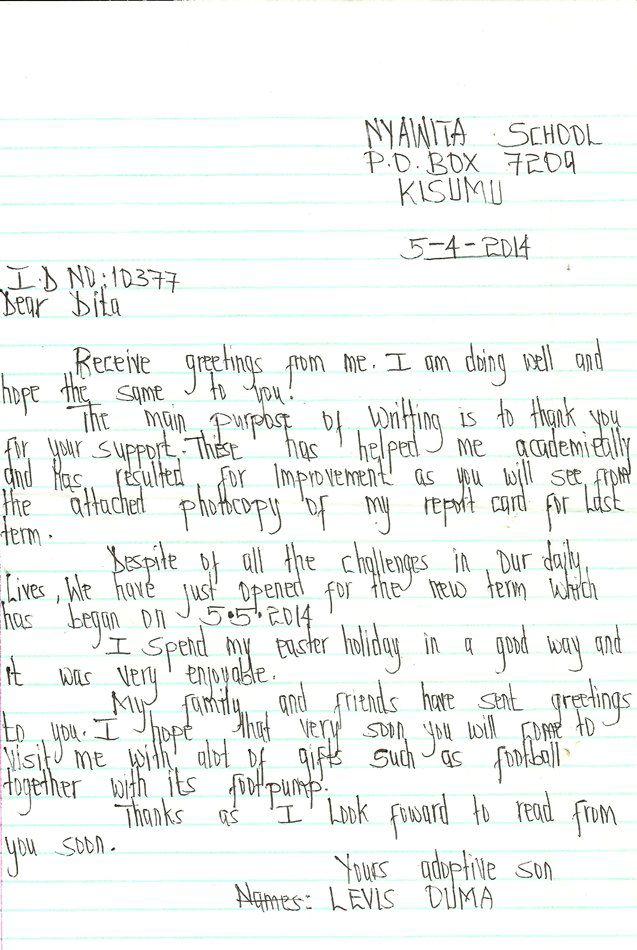 NYAWITA SCHOOL
P.O. BOX 7209
KISUMU
5-4-2014
I.D NO: 10377
Dear Dita
Receive greetings from me. I am doing well and
hope the same to you!
The main purpose of Writting is to thank you
for your support. These has helped me academically
and has resulted for improvement as you will see from
the attached photocopy of my report card for last
term.
Despite of all the challenges in our daily
Lives, We have just opened for the new term which
has began on 5.5.2014
I spend my easter holiday in a good way and
it was very enjoyable.
My family and friends have sent greetings
to you. I hope that very soon you will come to
visit me with alot of gifts such as football
together with its footpump.
Thanks as I Look foward to read from
you soon.
Yours adoptive son
Names: LEVIS OUMA